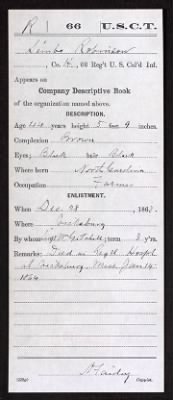 R | 66 | U.S.C.T.
Robinson
Co. K, 66 Reg't U. S. Col'd Inf.
Appears on
Company Descriptive Book
of the organization named above.
DESCRIPTION.
Age years; height 5 feet 9 inches.
Complexion Brown
Eyes Black hair Black
Where born North Carolina
Occupation Farmer
ENLISTMENT.
When Dec 28, 1863.
Where Vicksburg
By whom ; term 3 y'rs.
Remarks: Died in Regtl Hospl
at Vicksburg, Miss Jan 14
1864
Copyist.